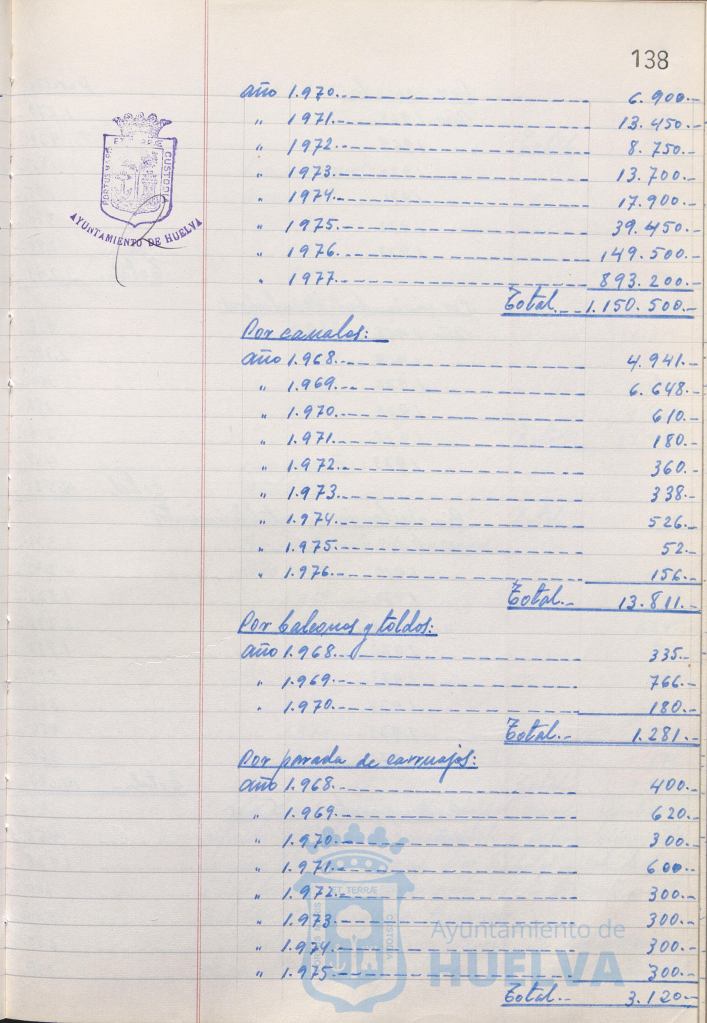 138
año 1.970.- 6.900.-
" 1971.- 13.450.-
" 1972.- 8.750.-
" 1973.- 13.700.-
" 1974.- 17.900.-
" 1975.- 39.450.-
" 1976.- 149.500.-
" 1977.- 893.200.-
Total.- 1.150.500.-
Por canalos:
año 1.968.- 4.941.-
" 1.969.- 6.648.-
" 1.970.- 610.-
" 1.971.- 180.-
" 1.972.- 360.-
" 1.973.- 338.-
" 1.974.- 526.-
" 1.975.- 52.-
" 1.976.- 156.-
Total.- 13.811.-
Por balcones y toldos:
año 1.968.- 335.-
" 1.969.- 766.-
" 1.970.- 180.-
Total.- 1.281.-
Por parada de carruajes:
año 1.968.- 400.-
" 1.969.- 620.-
" 1.970.- 300.-
" 1.971.- 600.-
" 1.972.- 300.-
" 1.973.- 300.-
" 1.974.- 300.-
" 1.975.- 300.-
Total.- 3.120.-
PORTUS MARIS ET TERRÆ CUSTODIA
AYUNTAMIENTO DE HUELVA
PORTUS MARIS ET TERRÆ CUSTODIA
Ayuntamiento de
HUELVA